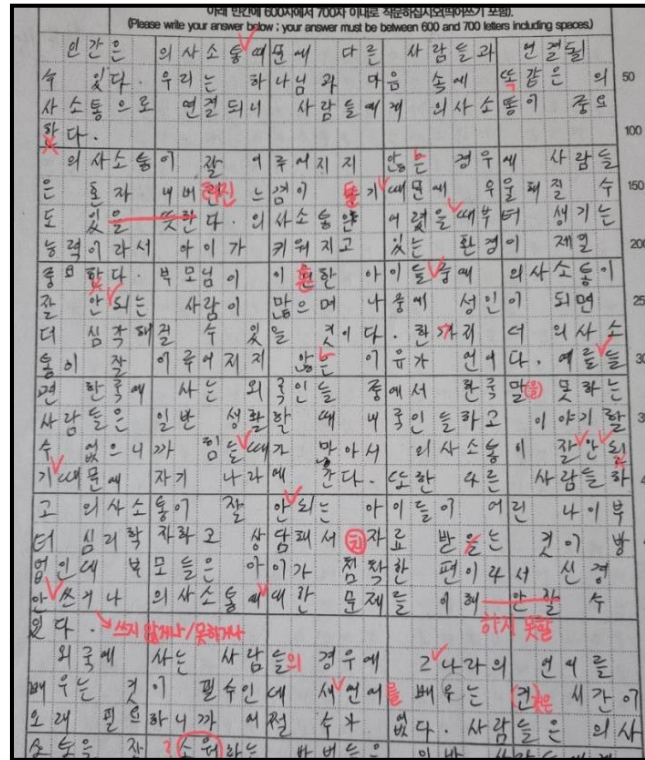 아래 빈칸에 600자에서 700자 이내로 작문하십시오(띄어쓰기 포함).
(Please write your answer below ; your answer must be between 600 and 700 letters including spaces.)
인간은 의사소통때문에 다른 사람들과 연결될
수 있다. 우리는 하나님과 마음 속에 똑같은 의 50
사소통으로 연결되니 사람들에게 의사소통이 중요
하다. 100
의사소통이 잘 이루어지지 않는 경우에 사람들
은 혼자 내버려진 느낌이 들기때문에 우울해질 수 150
도 있을 뜻한다. 의사소통은 어렸을때부터 생기는
능력이라서 아이가 키워지고 있는 환경이 제일 200
중요한다. 부모님이 이혼한 아이들중에 의사소통이
잘 안되는 사람이 많으며 나중에 성인이 되면 25
더 심각해질 수 있을 것이다. 한가지 더 의사소
통이 잘 이루어지지 않는 이유가 언어다. 예를들 30
면 한국에 사는 외국인들 중에서 한국말을 못하는
사람들은 일반 생활할 때 내국인들하고 이야기할 3
수 없으니까 힘들때가 많아서 의사소통이 잘안되
기때문에 자기 나라에 간다. 또한 다른 사람들하 4
고 의사소통이 잘 안되는 아이들이 어린 나이부
터 심리학자하고 상담해서 치료 받는 것이 방
법인데 부모들은 아이가 점학한 편이라서 신경
안쓰거나 의사소통에대한 문제들 이해 안할 수
있다. 쓰지 않거나/못하거나 하지 못할
외국에 사는 사람들의 경우에 그나라의 언어를
배우는 것이 필수인데 새언어를 배우는 건 시간이
오래 필요하니까 어쩔 수가 없다. 사람들은 의사
소통을 잘